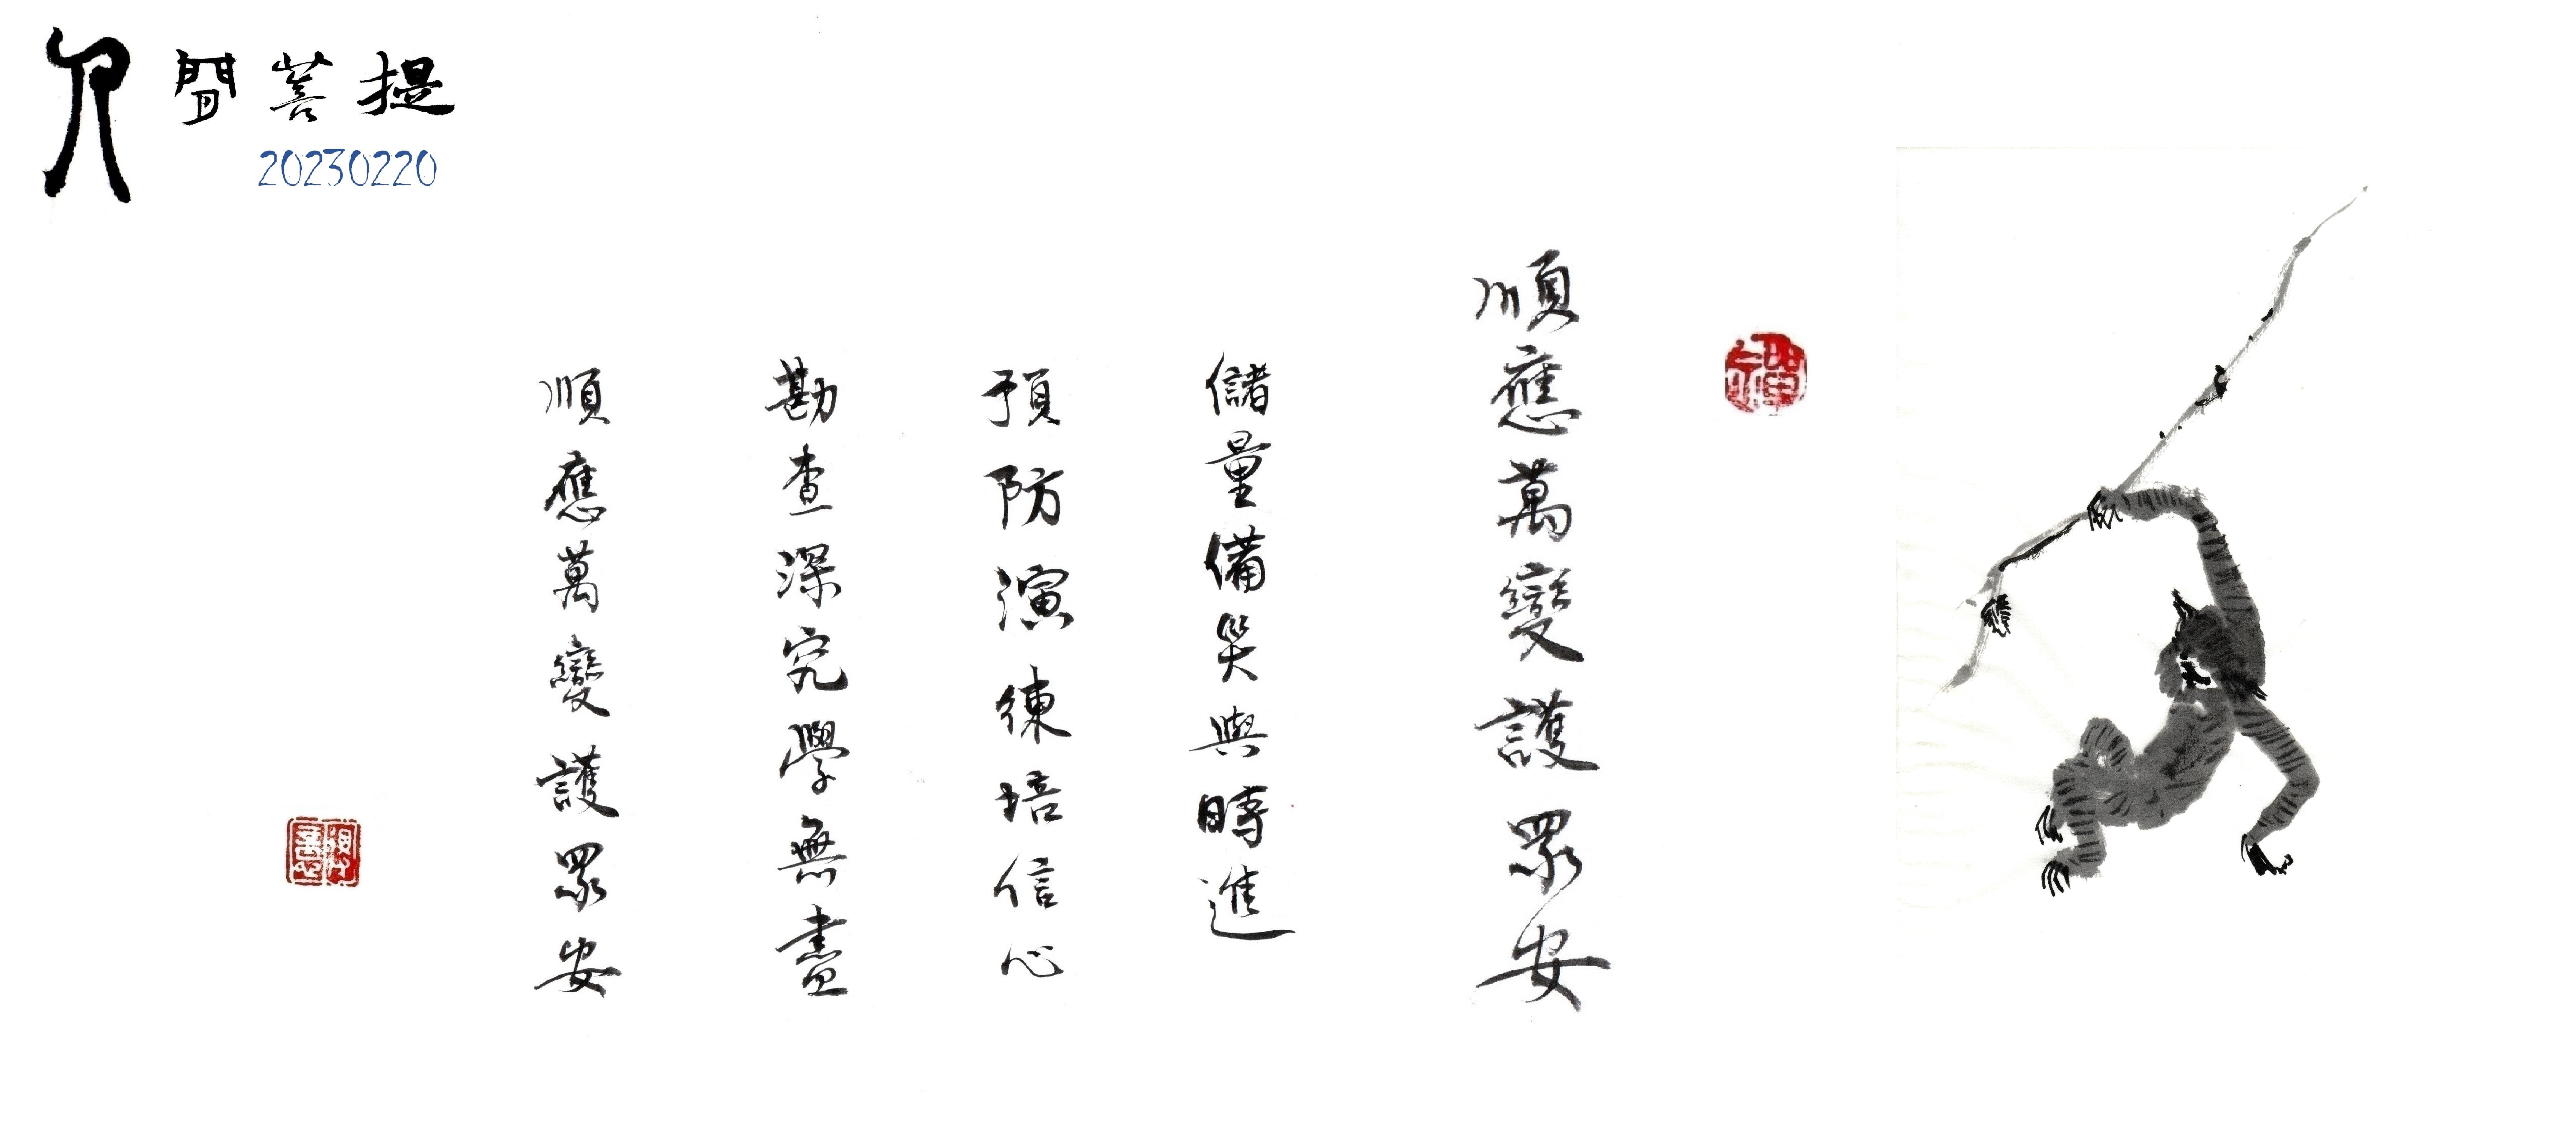 人間菩提
20230220
順應萬變護眾安
儲量備災與時進
預防演練培信心
勘查深究學無盡
順應萬變護眾安